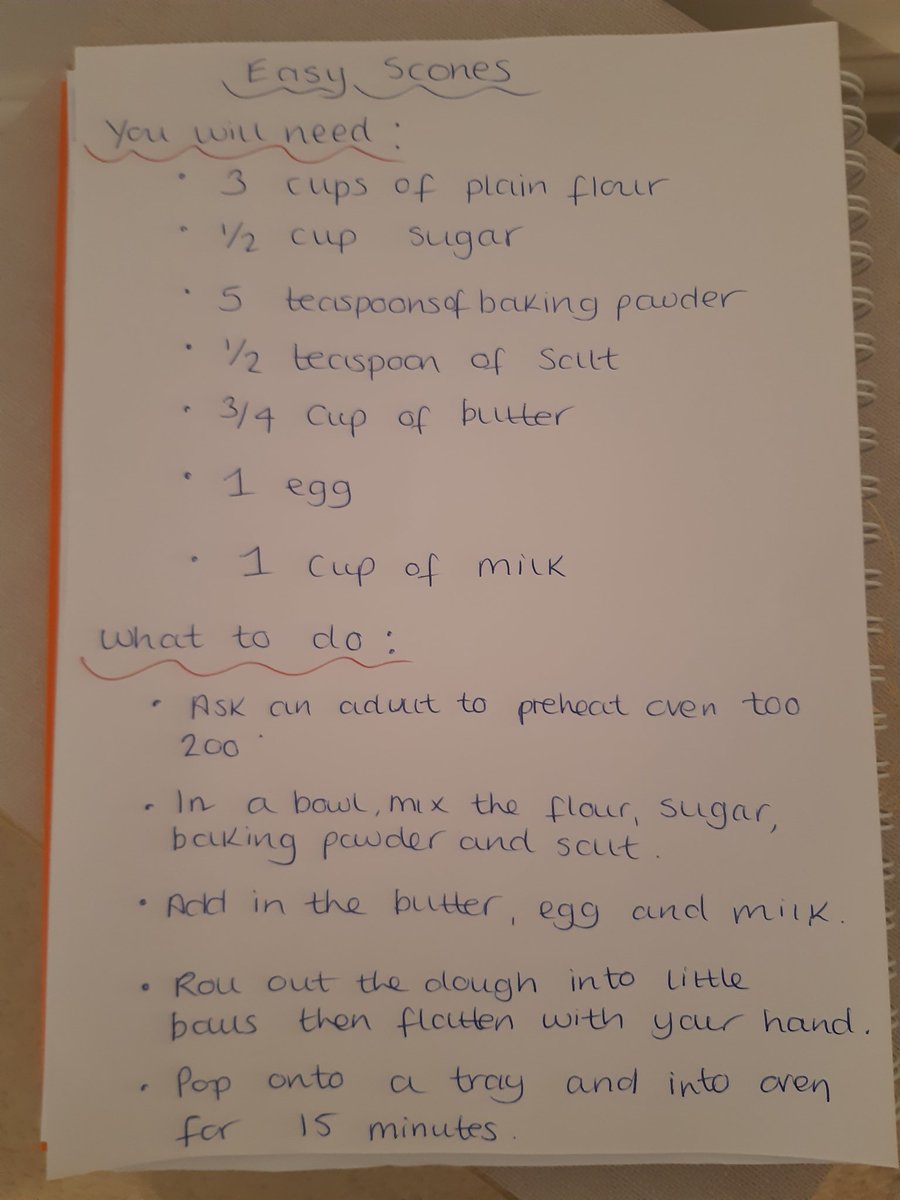 Easy Scones
You will need:
• 3 cups of plain flour
• 1/2 cup sugar
• 5 teaspoons of baking powder
• 1/2 teaspoon of Salt
• 3/4 Cup of butter
• 1 egg
• 1 Cup of milk
What to do:
• Ask an adult to preheat oven too
200°
• In a bowl, mix the flour, sugar,
baking powder and salt.
• Add in the butter, egg and milk.
• Roll out the dough into little
balls then flatten with your hand.
• Pop onto a tray and into oven
for 15 minutes.